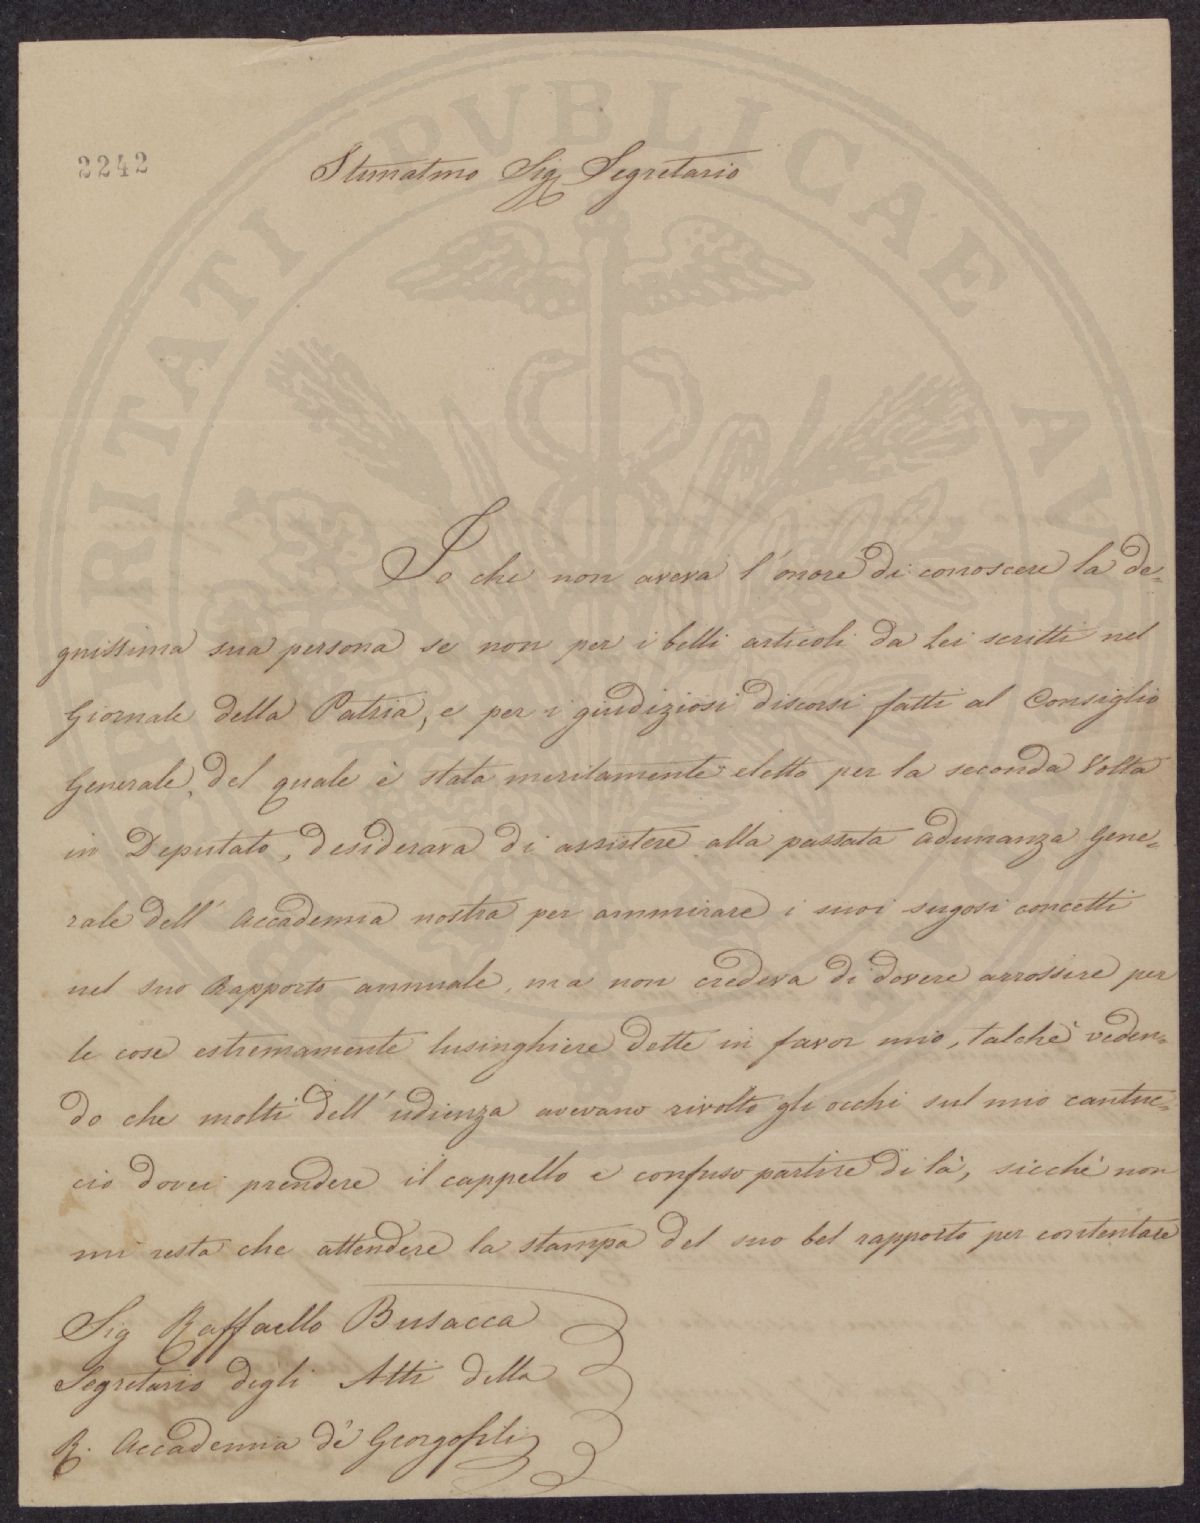 2242
Stimatmo Sig Segretario
Io che non aveva l'onore di conoscere la de-
gnissima sua persona se non per i belli articoli da lei scritti nel
Giornale della Patria, e per i giudiziosi discorsi fatti al Consiglio
Generale, del quale è stata meritamente eletto per la seconda Volta
in Deputato, desiderava di assistere alla passata adunanza Gene-
rale dell' Accademia nostra per ammirare i suoi sugosi concetti
nel suo Rapporto annuale, ma non credeva di dovere arrossire per
le cose estremamente lusinghiere dette in favor mio, talchè veden-
do che molti dell' udienza avevano rivolto gli occhi sul mio cantuc-
cio dovei prendere il cappello e confuso partire di là, sicchè non
mi resta che attendere la stampa del suo bel rapporto per contentare
Sig Raffaello Busacca
Segretario degli Atti della
R. Accademia de' Georgofili